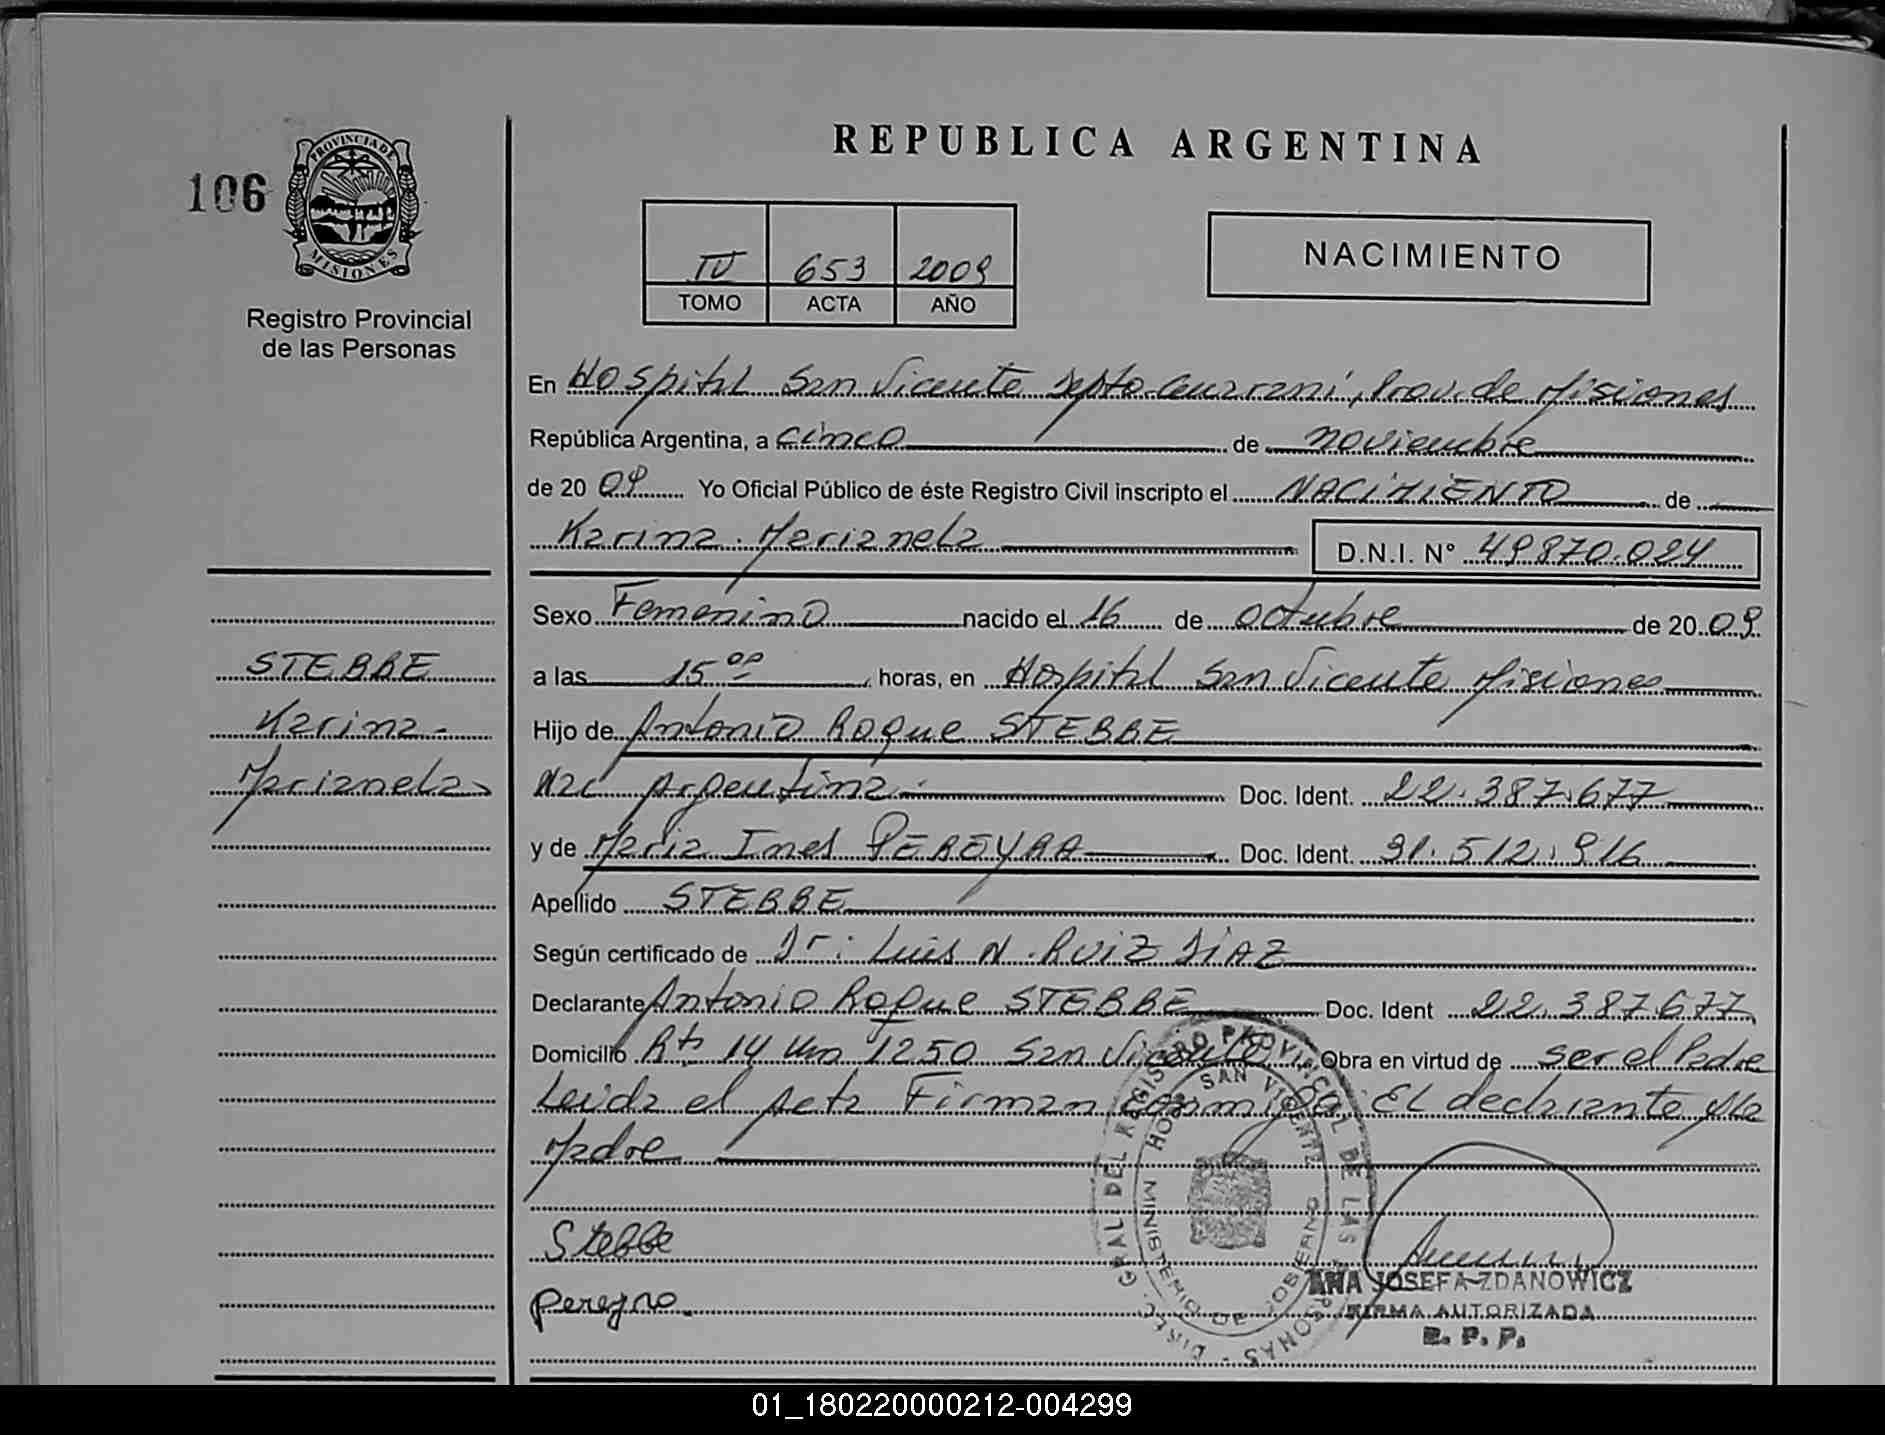 106
PROVINCIA DE
MISIONES
Registro Provincial
de las Personas
REPUBLICA ARGENTINA
IV 653 2009
TOMO ACTA AÑO
NACIMIENTO
En Hospital San Vicente Depto Guarani, Prov. de Misiones
República Argentina, a cinco de noviembre
de 20 09 Yo Oficial Público de éste Registro Civil inscripto el NACIMIENTO de
Karina Marianela D.N.I. N° 49870.024
Sexo Femenino nacido el 16 de octubre de 20 09
STEBBE
Karina
Marianela
a las 15 00 horas, en Hospital San Vicente Misiones
Hijo de Antonio Roque STEBBE
Nac Argentina Doc. Ident. 22.387.677
y de Maria Ines PEREYRA Doc. Ident. 31.512.916
Apellido STEBBE
Según certificado de Dr: Luis N. RUIZ DIAZ
Declarante Antonio Roque STEBBE Doc. Ident 22.387.677
Domicilio Rta 14 Km 1250 San Vicente Obra en virtud de ser el Padre
Leida el acta Firman conmigo: El declarante y la
Madre
Stebbe
DIREC. GRAL DEL REGISTRO PROVINCIAL DE LAS PERSONAS
HOSP. SAN VICENTE
MINISTERIO DE GOBIERNO
ANA JOSEFA ZDANOWICZ
FIRMA AUTORIZADA
R. P. P.
01_180220000212-004299